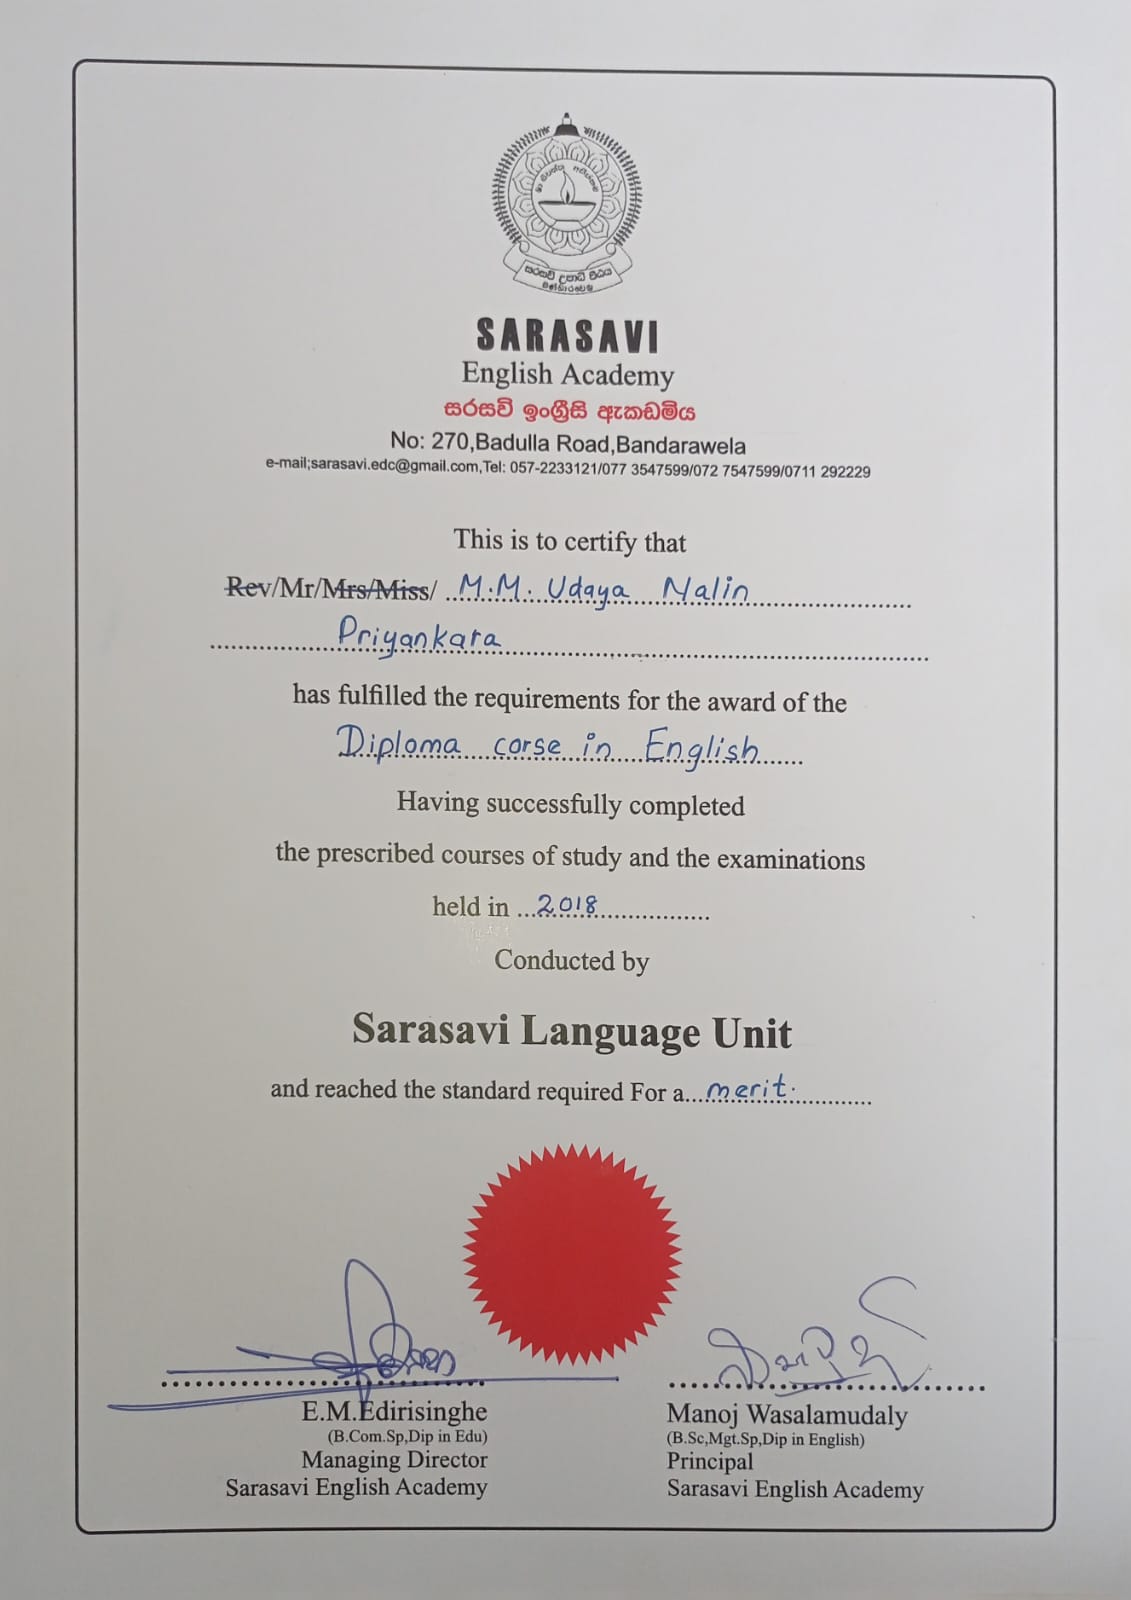 SARASAVI
English Academy
සරසවි ඉංග්‍රීසි ඇකඩමිය
No: 270,Badulla Road,Bandarawela
e-mail;sarasavi.edc@gmail.com,Tel: 057-2233121/077 3547599/072 7547599/0711 292229
This is to certify that
Rev/Mr/Mrs/Miss/ M.M. Udaya Nalin
Priyankara
has fulfilled the requirements for the award of the
Diploma corse in English
Having successfully completed
the prescribed courses of study and the examinations
held in 2018
Conducted by
Sarasavi Language Unit
and reached the standard required For a merit.
E.M.Edirisinghe
(B.Com.Sp,Dip in Edu)
Managing Director
Sarasavi English Academy
Manoj Wasalamudaly
(B.Sc,Mgt.Sp,Dip in English)
Principal
Sarasavi English Academy